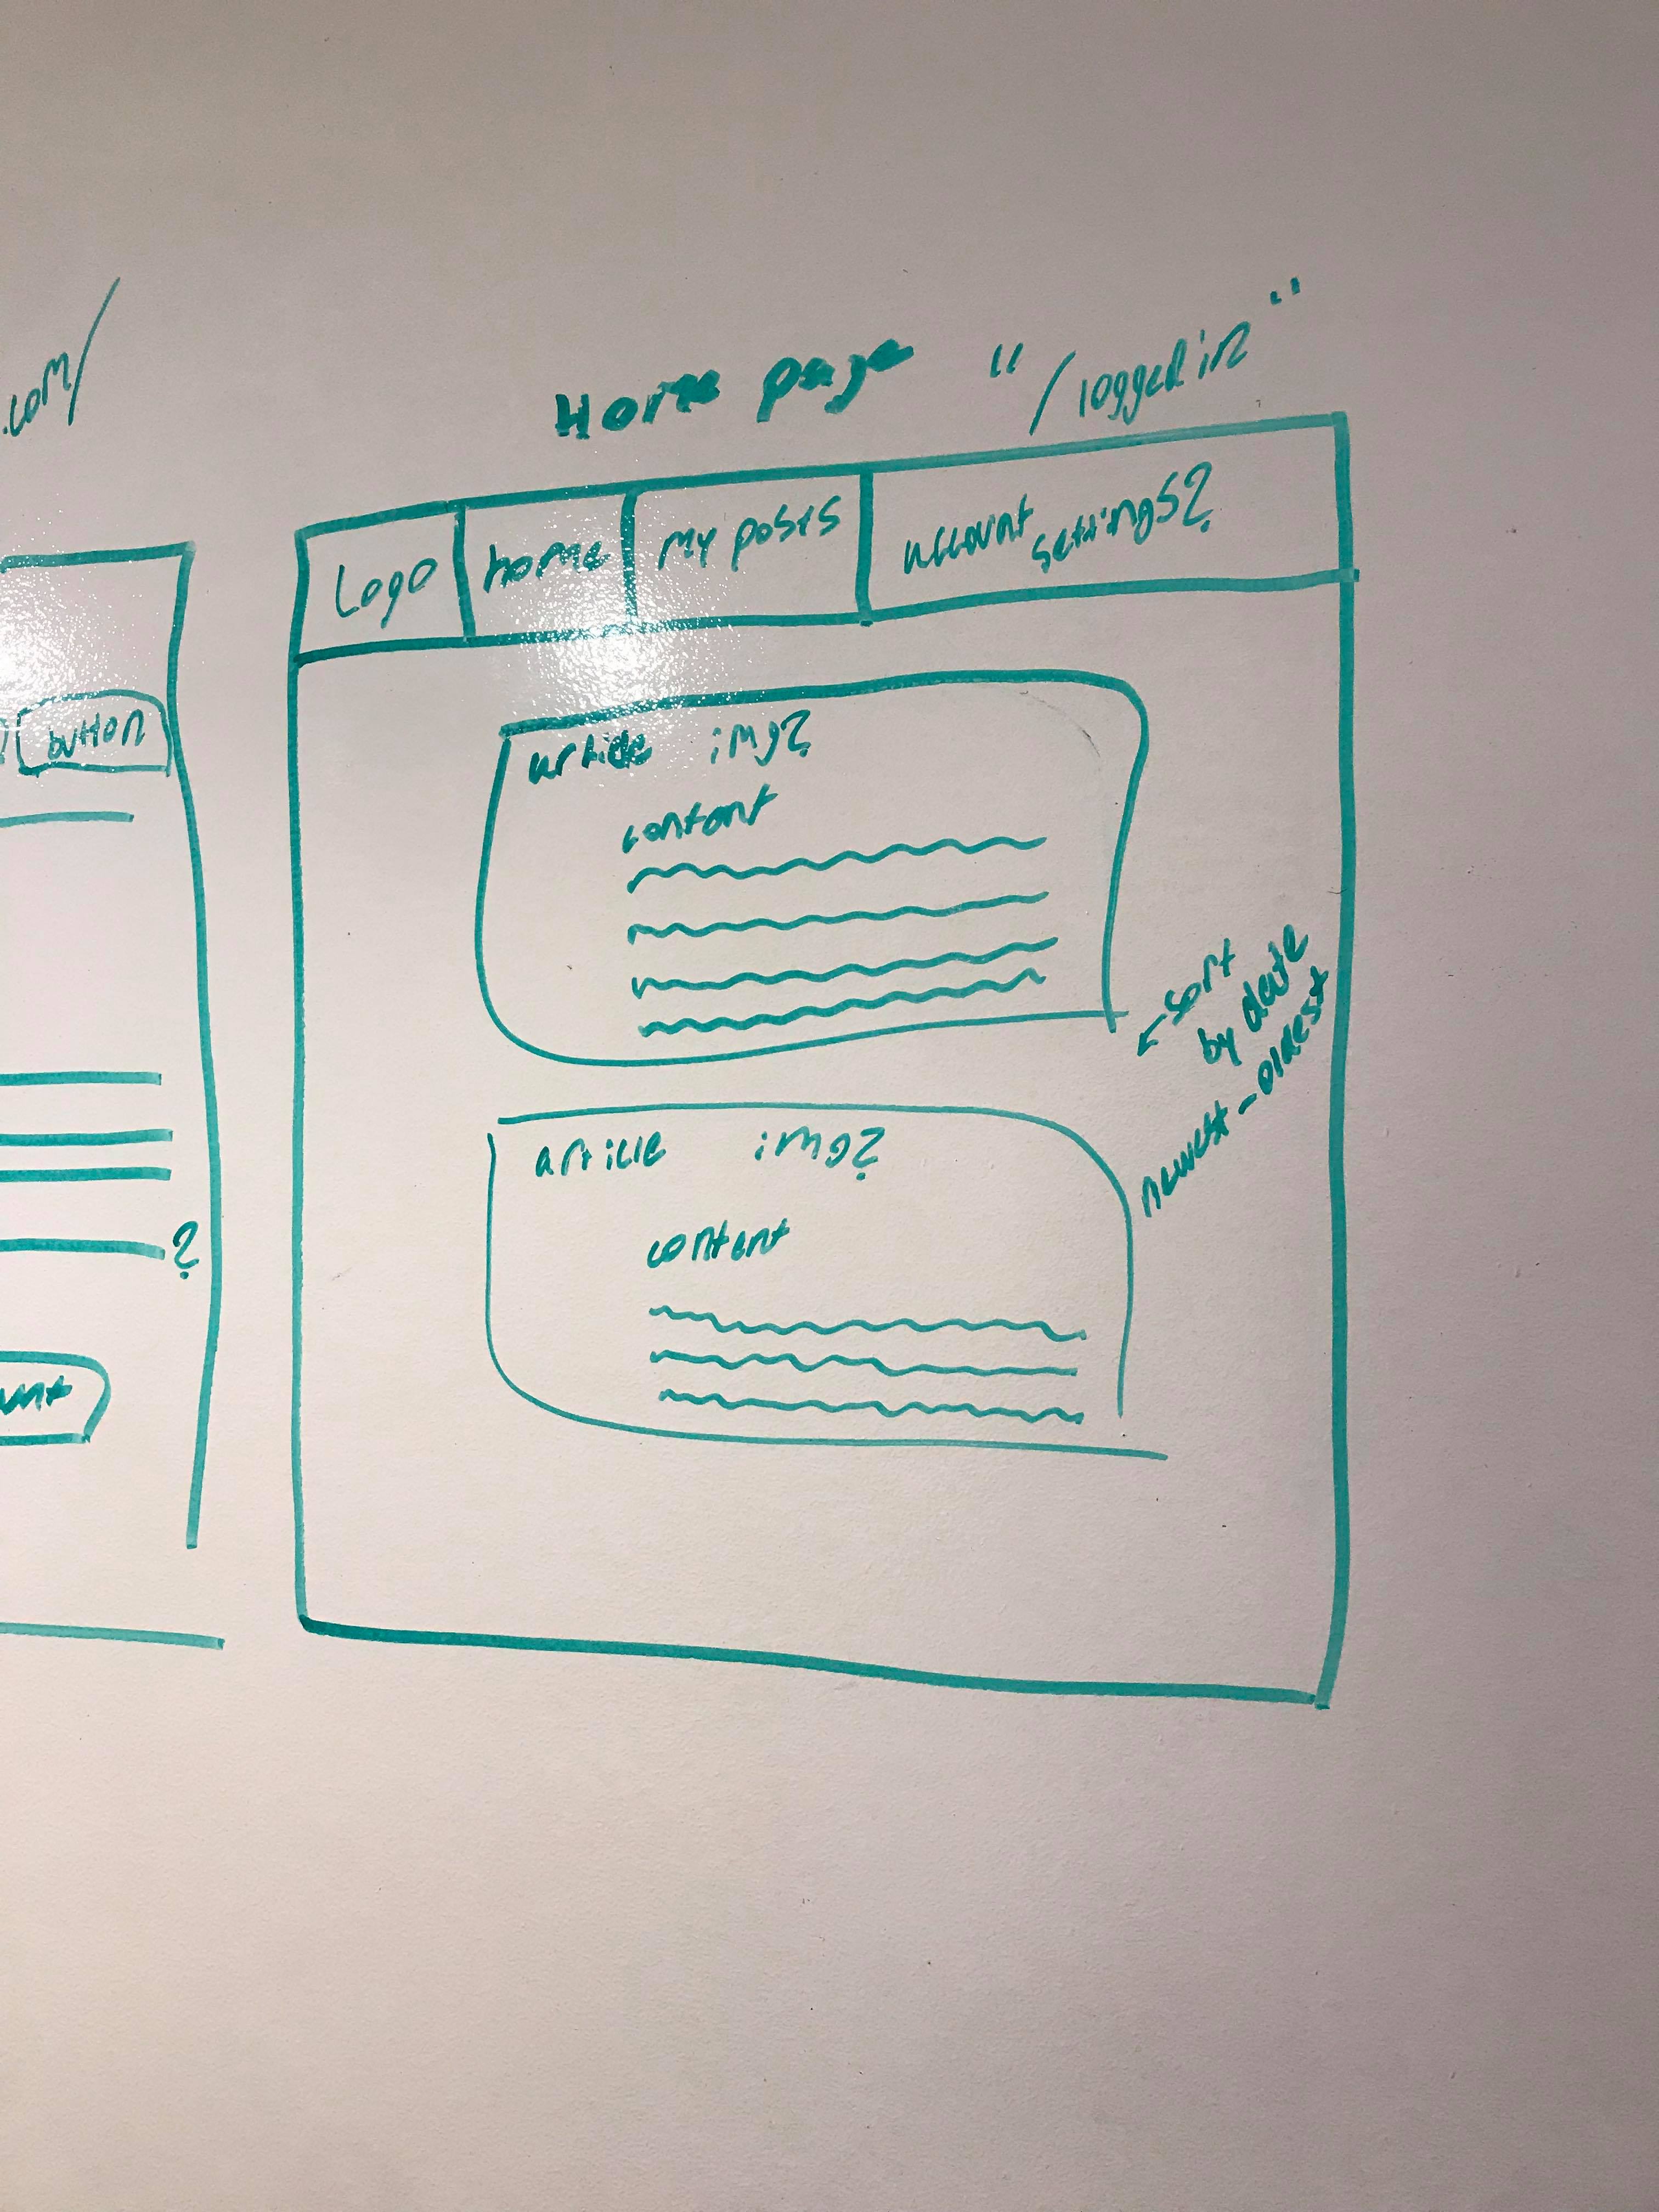 .com/
button
?
Home page "/logged in"
Logo
home
my posts
account
settings?
article img?
content
sort
by date
newest - oldest
article img?
content